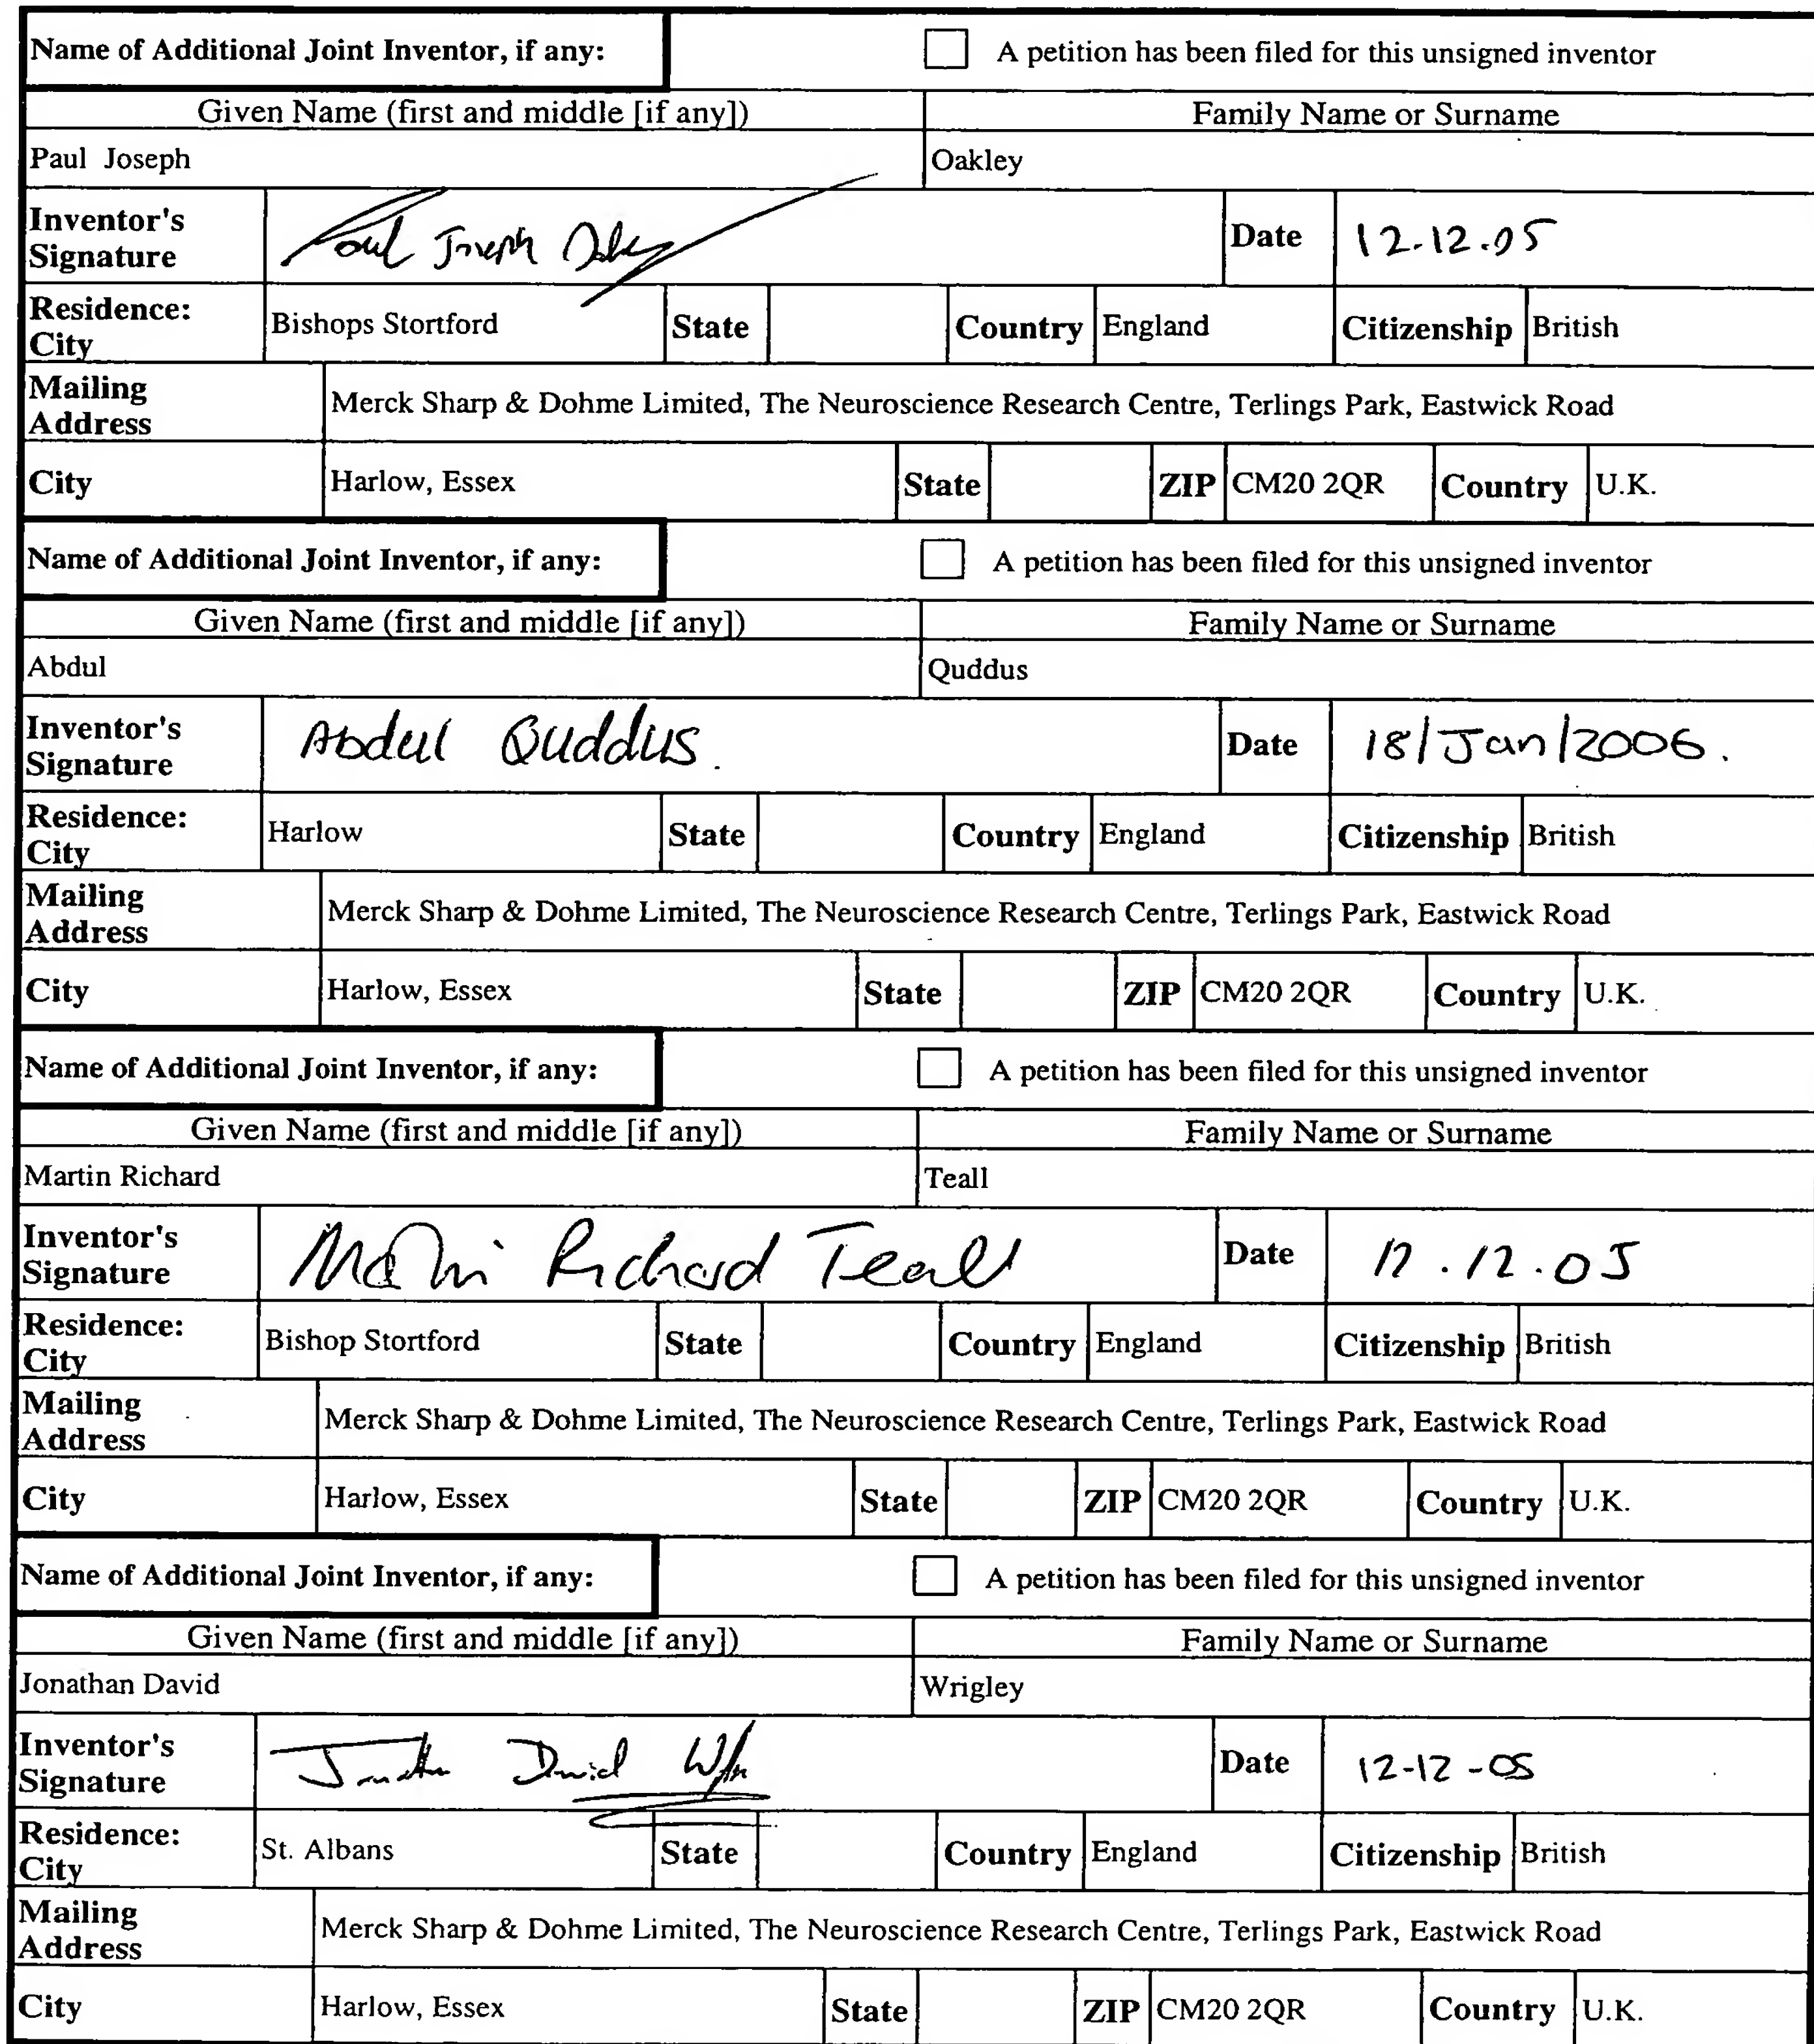 Name of Additional Joint Inventor, if any: A petition has been filed for this unsigned inventor
Given Name (first and middle [if any]) Family Name or Surname
Paul Joseph Oakley
Inventor's Signature Paul Joseph Oakley Date 12.12.05
Residence: City Bishops Stortford State Country England Citizenship British
Mailing Address Merck Sharp & Dohme Limited, The Neuroscience Research Centre, Terlings Park, Eastwick Road
City Harlow, Essex State ZIP CM20 2QR Country U.K.
Name of Additional Joint Inventor, if any: A petition has been filed for this unsigned inventor
Given Name (first and middle [if any]) Family Name or Surname
Abdul Quddus
Inventor's Signature Abdul Quddus. Date 18/Jan/2006.
Residence: City Harlow State Country England Citizenship British
Mailing Address Merck Sharp & Dohme Limited, The Neuroscience Research Centre, Terlings Park, Eastwick Road
City Harlow, Essex State ZIP CM20 2QR Country U.K.
Name of Additional Joint Inventor, if any: A petition has been filed for this unsigned inventor
Given Name (first and middle [if any]) Family Name or Surname
Martin Richard Teall
Inventor's Signature Martin Richard Teall Date 12.12.05
Residence: City Bishop Stortford State Country England Citizenship British
Mailing Address Merck Sharp & Dohme Limited, The Neuroscience Research Centre, Terlings Park, Eastwick Road
City Harlow, Essex State ZIP CM20 2QR Country U.K.
Name of Additional Joint Inventor, if any: A petition has been filed for this unsigned inventor
Given Name (first and middle [if any]) Family Name or Surname
Jonathan David Wrigley
Inventor's Signature Jonathan David Date 12-12-05
Residence: City St. Albans State Country England Citizenship British
Mailing Address Merck Sharp & Dohme Limited, The Neuroscience Research Centre, Terlings Park, Eastwick Road
City Harlow, Essex State ZIP CM20 2QR Country U.K.